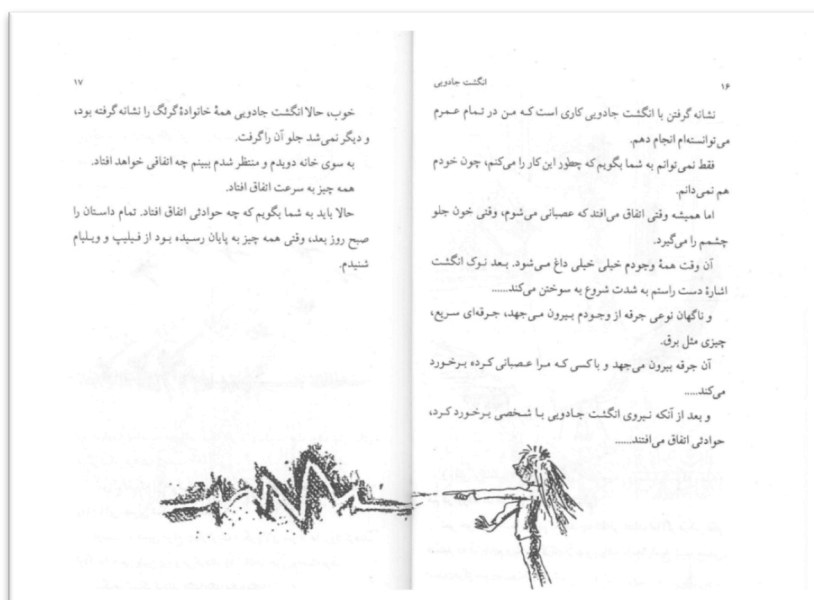 ۱۶
انگشت جادویی
نشانه گرفتن با انگشت جادویی کاری است که من در تمام عمرم
می‌توانسته‌ام انجام دهم.
فقط نمی‌توانم به شما بگویم که چطور این کار را می‌کنم، چون خودم
هم نمی‌دانم.
اما همیشه وقتی اتفاق می‌افتد که عصبانی می‌شوم، وقتی خون جلو
چشمم را می‌گیرد.
آن وقت همهٔ وجودم خیلی خیلی داغ می‌شود. بعد نوک انگشت
اشارهٔ دست راستم به شدت شروع به سوختن می‌کند......
و ناگهان نوعی جرقه از وجودم بیرون می‌جهد، جرقه‌ای سریع،
چیزی مثل برق.
آن جرقه بیرون می‌جهد و با کسی که مرا عصبانی کرده برخورد
می‌کند.....
و بعد از آنکه نیروی انگشت جادویی با شخصی برخورد کرد،
حوادثی اتفاق می‌افتند......
۱۷
خوب، حالا انگشت جادویی همهٔ خانوادهٔ گرگ را نشانه گرفته بود،
و دیگر نمی‌شد جلو آن را گرفت.
به سوی خانه دویدم و منتظر شدم ببینم چه اتفاقی خواهد افتاد.
همه چیز به سرعت اتفاق افتاد.
حالا باید به شما بگویم که چه حوادثی اتفاق افتاد. تمام داستان را
صبح روز بعد، وقتی همه چیز به پایان رسیده بود از فیلیپ و ویلیام
شنیدم.